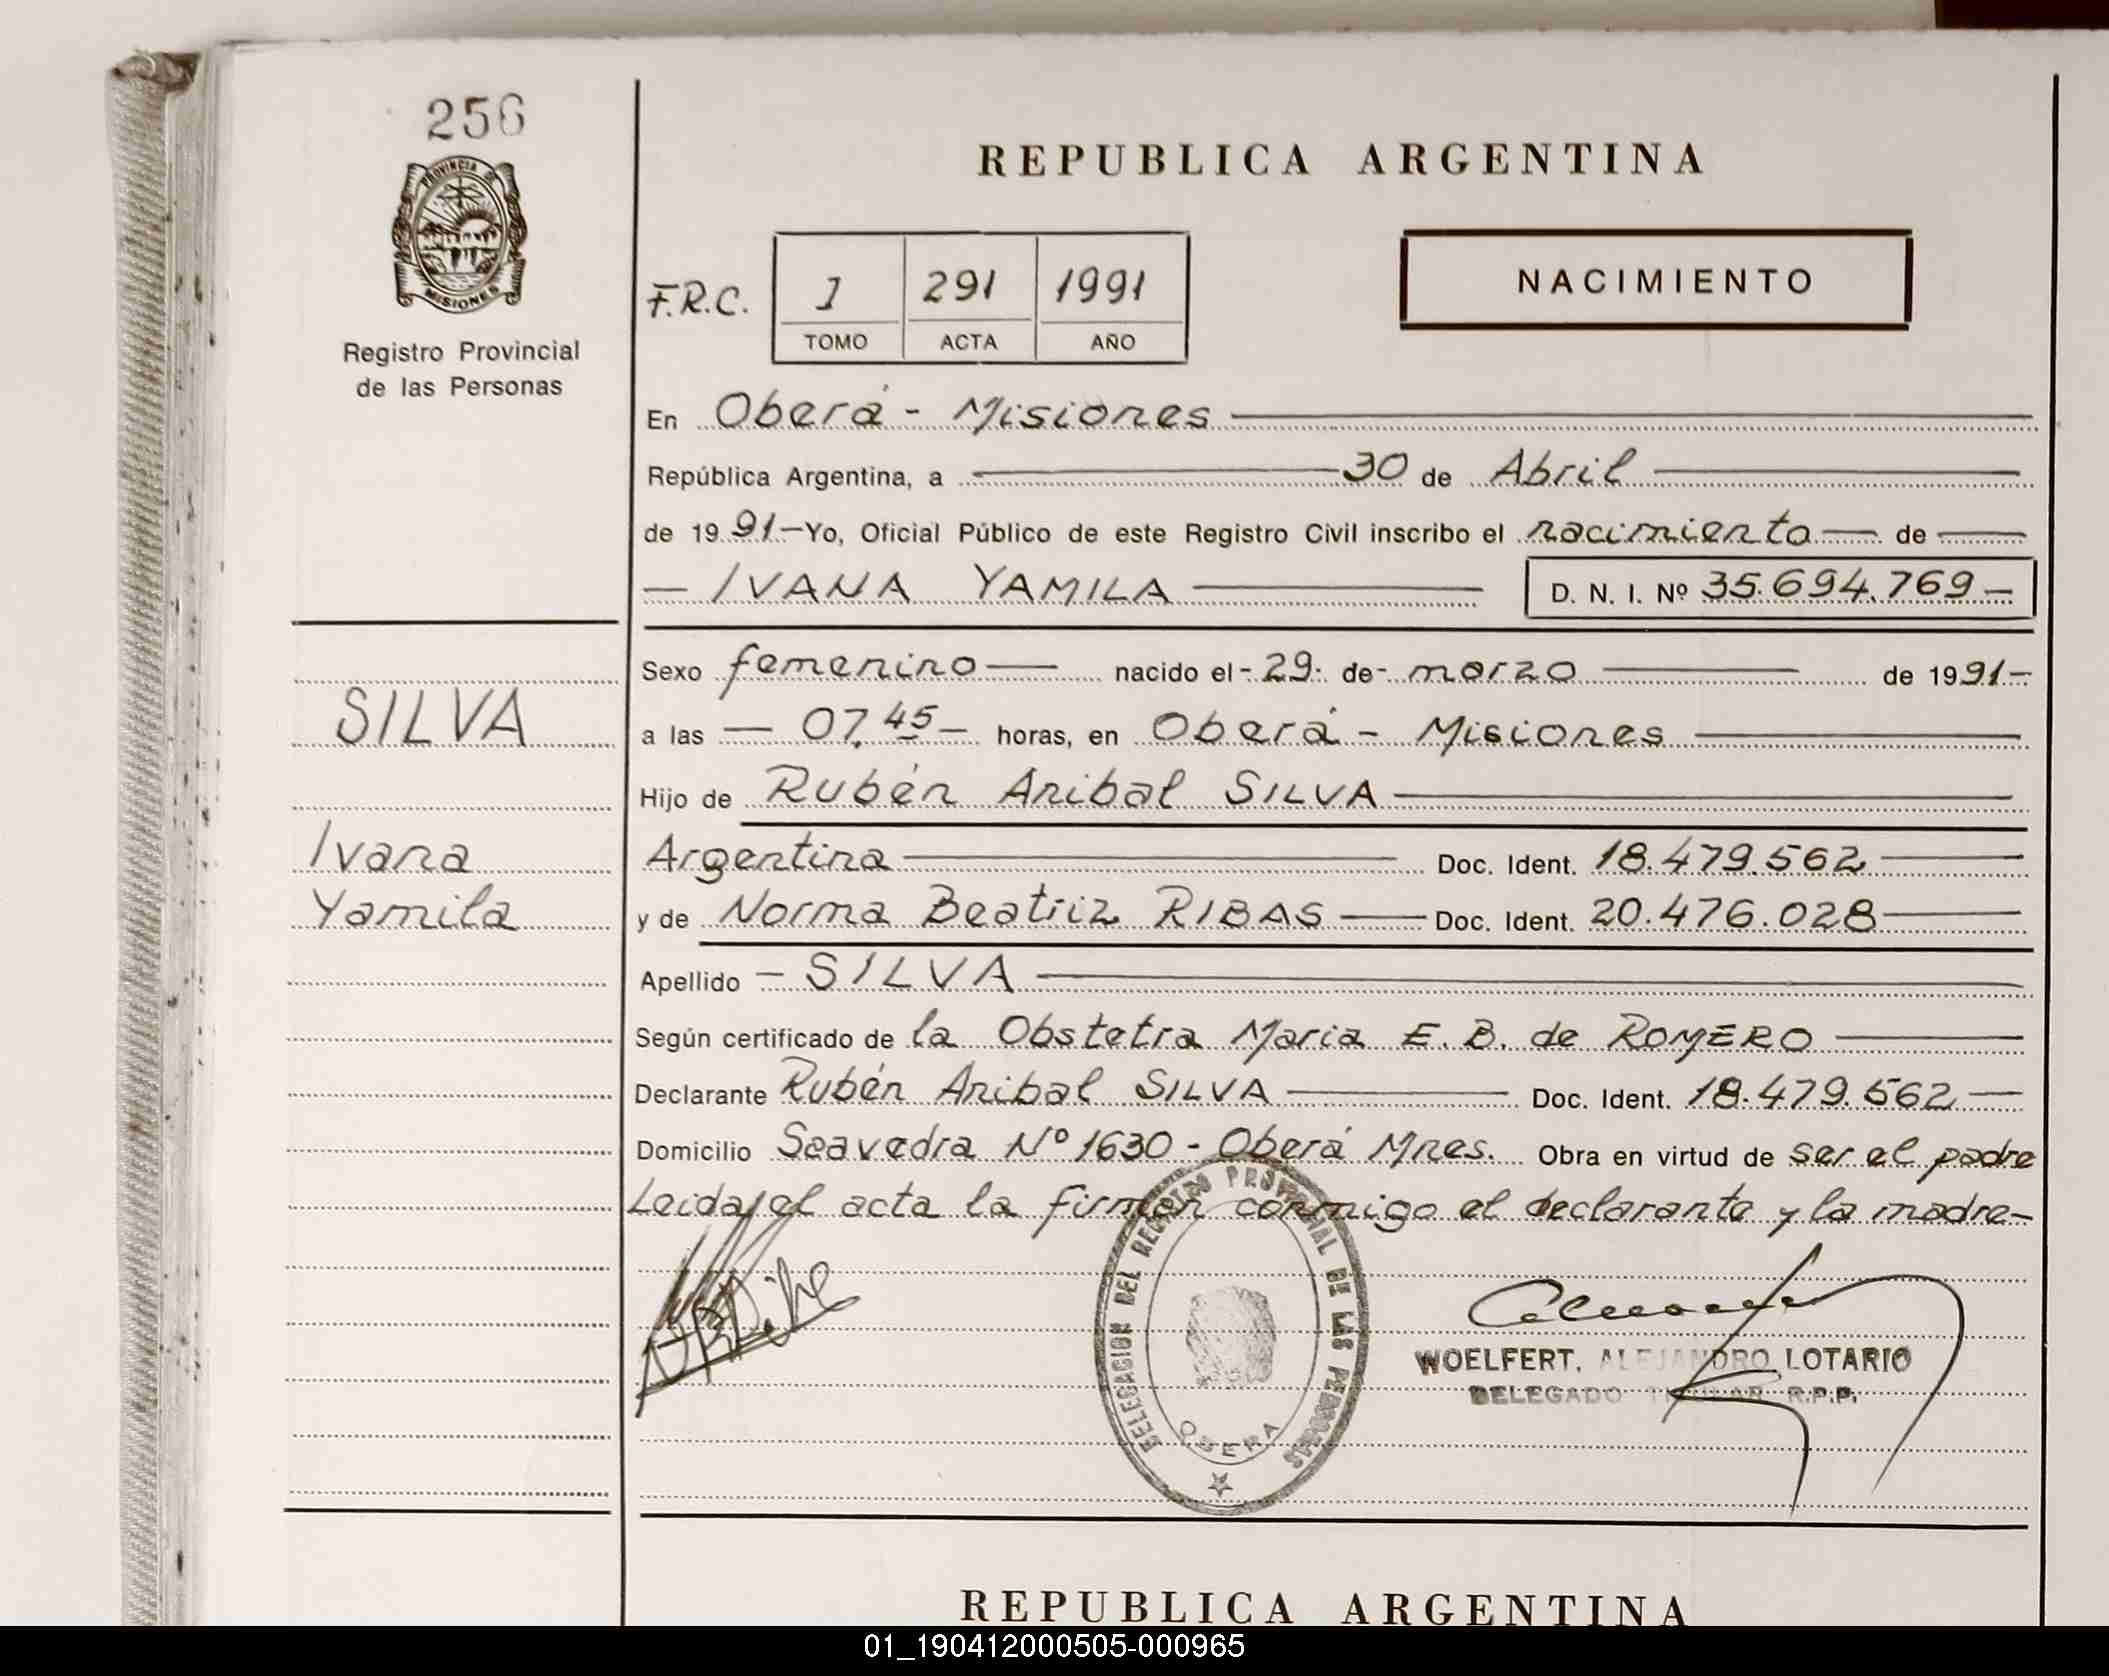 256
PROVINCIA DE
MISIONES
Registro Provincial
de las Personas
SILVA
Ivana
Yamila
REPUBLICA ARGENTINA
F.R.C.
I 291 1991
TOMO ACTA AÑO
NACIMIENTO
En Oberá - Misiones
República Argentina, a 30 de Abril
de 1991 - Yo, Oficial Público de este Registro Civil inscribo el nacimiento de
IVANA YAMILA D. N. I. Nº 35.694.769
Sexo femenino nacido el 29 de marzo de 1991
a las 07,45 horas, en Oberá - Misiones
Hijo de Rubén Anibal SILVA
Argentina Doc. Ident. 18.479.562
y de Norma Beatriz RIBAS Doc. Ident. 20.476.028
Apellido SILVA
Según certificado de la Obstetra Maria E. B. de ROMERO
Declarante Rubén Anibal SILVA Doc. Ident. 18.479.562
Domicilio Saavedra Nº 1630 - Oberá Mnes. Obra en virtud de ser el padre
Leida el acta la firman conmigo el declarante y la madre-
DELEGACION DEL REGISTRO PROVINCIAL DE LAS PERSONAS
OBERA
WOELFERT, ALEJANDRO LOTARIO
DELEGADO TITULAR R.P.P.
REPUBLICA ARGENTINA
01_190412000505-000965